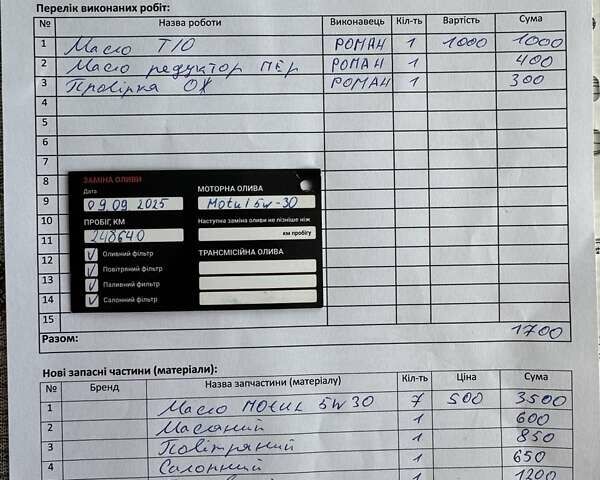 Перелік виконаних робіт:
№ Назва роботи Виконавець Кіл-ть Вартість Сума
1 Масло ТІО РОМАН 1 1000 1000
2 Масло редуктор пер РОМАН 1 400
3 Провірка ОХ РОМАН 1 300
4
5
6
7
8
9
10
11
12
13
14
15
Разом: 1700
ЗАМІНА ОЛИВИ
Дата
09.09 2025
ПРОБІГ, КМ
248640
Оливний фільтр
Повітряний фільтр
Паливний фільтр
Салонний фільтр
МОТОРНА ОЛИВА
Motul 5w-30
Наступна заміна оливи не пізніше ніж
км пробігу
ТРАНСМІСІЙНА ОЛИВА
Нові запасні частини (матеріали):
№ Бренд Назва запчастини (матеріалу) Кіл-ть Ціна Сума
1 Масло MOTUL 5w30 7 500 3500
2 Масляний 1 600
3 Повітряний 1 850
4 Салонний 1 650
1 1200